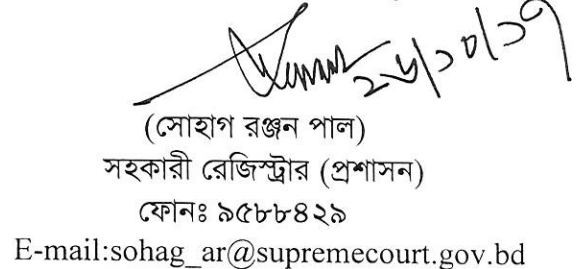 ২৬/১০/১৭
(সোহাগ রঞ্জন পাল)
সহকারী রেজিস্ট্রার (প্রশাসন)
ফোনঃ ৯৫৮৮৪২৯
E-mail:sohag_ar@supremecourt.gov.bd